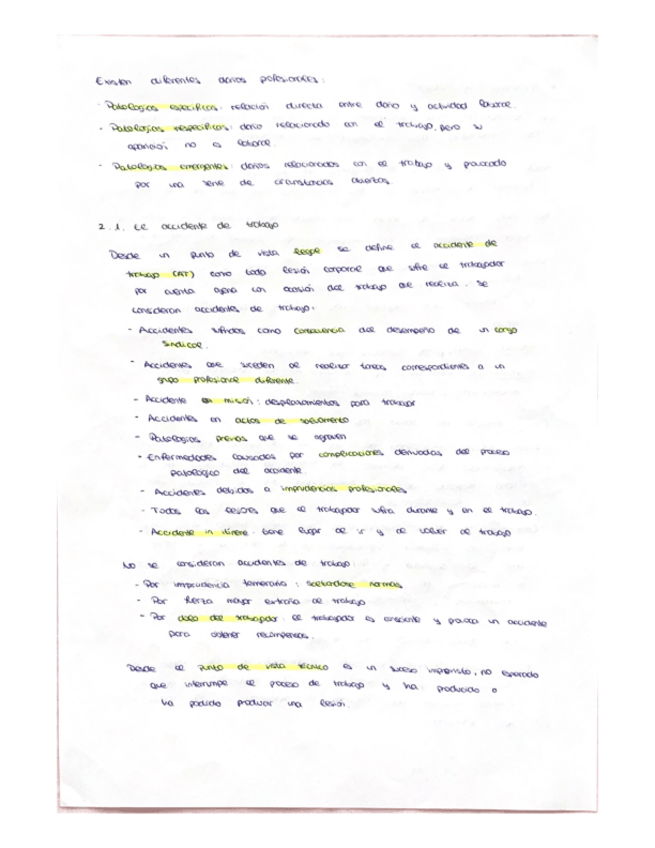 Existen diferentes daños profesionales:
- Patologías específicas: relación directa entre daño y actividad laboral.
- Patologías inespecíficas: daño relacionado con el trabajo, pero su
aparición no es laboral.
- Patologías emergentes: daños relacionados con el trabajo y provocado
por una serie de circunstancias abiertas.
2.1. El accidente de trabajo
Desde un punto de vista legal se define el accidente de
trabajo (AT) como toda lesión corporal que sufre el trabajador
por cuenta ajena con ocasión del trabajo que realiza. Se
consideran accidentes de trabajo:
- Accidentes sufridos como consecuencia del desempeño de un cargo
sindical.
- Accidentes que suceden al realizar tareas correspondientes a un
grupo profesional diferente.
- Accidente en misión: desplazamientos para trabajar
- Accidentes en actos de salvamento
- Patologías previas que se agraven
- Enfermedades causadas por complicaciones derivadas del proceso
patológico del accidente.
- Accidentes debidos a imprudencias profesionales
- Todas las lesiones que el trabajador sufra durante y en el trabajo.
- Accidente in itinere: tiene lugar al ir y al volver al trabajo
No se consideran accidentes de trabajo:
- Por imprudencia temeraria: saltándose normas
- Por fuerza mayor extraña al trabajo
- Por dolo del trabajador: el trabajador es consciente y pausa un accidente
para obtener recompensas.
Desde el punto de vista técnico es un suceso imprevisto, no esperado
que interrumpe el proceso de trabajo y ha producido o
ha podido producir una lesión.